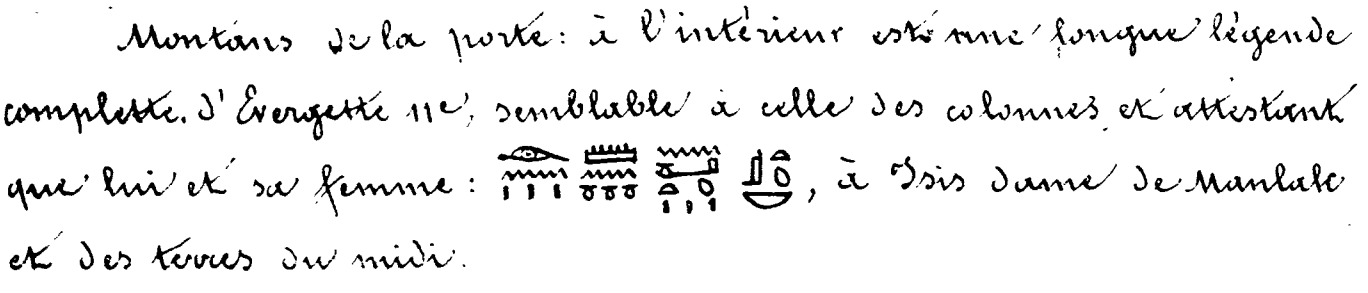 Montans de la porte: à l'intérieur est une longue légende
complette. d'Évergette IIe, semblable à celle des colonnes et attestant
que lui et sa femme: , à Isis dame de Manlak
et des terres du midi.